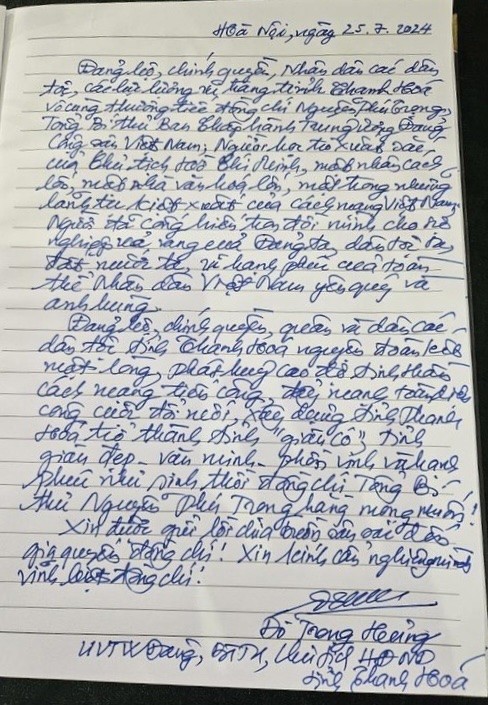 Hà Nội, ngày 25.7.2024
Đảng bộ, chính quyền, Nhân dân các dân
tộc, các lực lượng vũ trang tỉnh Thanh Hóa
vô cùng thương tiếc đồng chí Nguyễn Phú Trọng,
Tổng Bí thư Ban Chấp hành Trung ương Đảng
Cộng sản Việt Nam; Người học trò xuất sắc
của Chủ tịch Hồ Chí Minh, một nhân cách
lớn, một nhà văn hoá lớn, một trong những
lãnh tụ kiệt xuất của cách mạng Việt Nam.
Người đã cống hiến trọn đời mình cho sự
nghiệp vẻ vang của Đảng ta, dân tộc ta,
đất nước ta, vì hạnh phúc của toàn
thể Nhân dân Việt Nam yêu quý và
anh hùng.
Đảng bộ, chính quyền, quân và dân các
dân tộc tỉnh Thanh Hoá nguyện đoàn kết
một lòng, phát huy cao độ tinh thần
cách mạng tiến công, đẩy mạnh toàn diện
công cuộc đổi mới, xây dựng tỉnh Thanh
Hoá trở thành tỉnh "giàu có", tỉnh
giàu đẹp - văn minh - phồn vinh và hạnh
phúc như sinh thời đồng chí Tổng Bí
thư Nguyễn Phú Trọng hằng mong muốn!
Xin được gửi lời chia buồn sâu sắc đến
gia quyến đồng chí! Xin kính cẩn nghiêng mình
vĩnh biệt đồng chí!
Đỗ Trọng Hưng
UVTW Đảng, BTTU, Chủ tịch HĐND
tỉnh Thanh Hoá